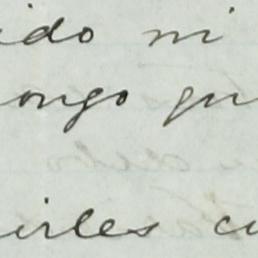 ido ni
ongo qu
irles cu